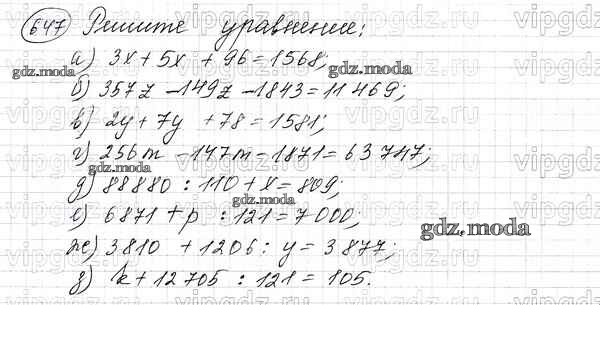 647 Решите уравнение:
а) 3x + 5x + 96 = 1568;
б) 357z - 149z - 1843 = 11 469;
в) 2y + 7y + 78 = 1581;
г) 256m - 147m - 1871 = 63 747;
д) 88880 : 110 + x = 809;
е) 6871 + p : 121 = 7000;
ж) 3810 + 1206 : y = 3877;
з) k + 12 705 : 121 = 105.
gdz.moda
gdz.moda
gdz.moda
gdz.moda
gdz.moda